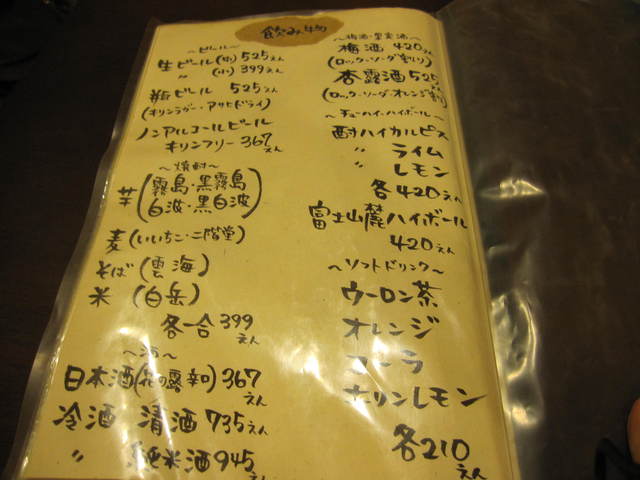 飲み物
〜ビール〜
生ビール(中)525えん
〃 (小)399えん
瓶ビール 525えん
(キリンラガー・アサヒドライ)
ノンアルコールビール
キリンフリー 367えん
〜焼酎〜
芋(霧島・黒霧島
白波・黒白波)
麦(いいちこ・二階堂)
そば(雲海)
米(白岳)
各一合399えん
〜酒〜
日本酒(花の露辛口)367えん
冷酒 清酒735えん
〃 純米酒945えん
〜梅酒・果実酒〜
梅酒 420えん
(ロック・ソーダ割り)
杏露酒 525えん
(ロック・ソーダ・オレンジ割)
〜チューハイ・ハイボール〜
酎ハイカルピス
〃 ライム
〃 レモン
各420えん
富士山麓ハイボール
420えん
〜ソフトドリンク〜
ウーロン茶
オレンジ
コーラ
キリンレモン
各210えん